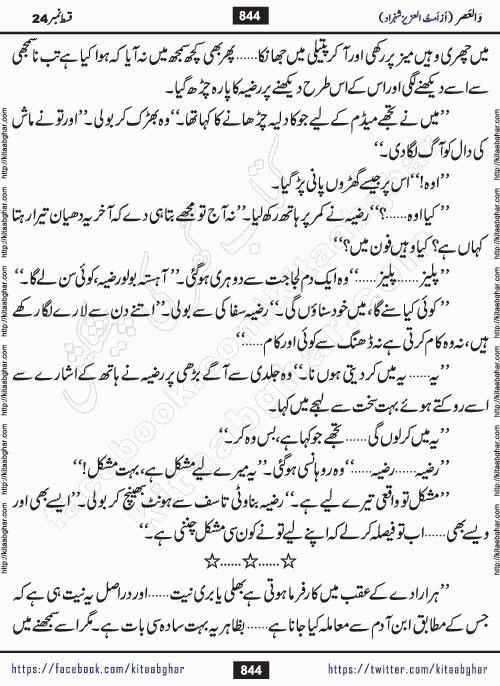 وَالعَصر (از اَمتُ العزیز شہزاد) 844 قسط نمبر 24
میں چھری وہیں میز پر رکھی اور آ کر پتیلی میں جھانکا......پھر بھی کچھ سمجھ میں نہ آیا کہ ہوا کیا ہے تب نا سمجھی
سے اسے دیکھنے لگی اور اس کے اس طرح دیکھنے پر رضیہ کا پارہ چڑھ گیا۔
”میں نے تجھے میڈم کے لیے جو کا دلیہ چڑھانے کا کہا تھا۔“ وہ بھڑک کر بولی۔ ”اور تو نے ماش
کی دال کو آگ لگا دی۔“
”اوہ!“ اس پر جیسے گھڑوں پانی پڑ گیا۔
”کیا اوہ......؟“ رضیہ نے کمر پر ہاتھ رکھ لیا۔ ”نہ آج تو مجھے بتا ہی دے کہ آخر یہ دھیان تیرا رہتا
کہاں ہے؟ کیا وہیں فون میں؟“
”پلیز...... پلیز......“ وہ ایک دم لجاجت سے دوہری ہوگئی۔ ”آہستہ بولو رضیہ، کوئی سن لے گا۔“
”کوئی کیا سنے گا، میں خود سناؤں گی۔“ رضیہ سفاکی سے بولی۔ ”اتنے دن سے لارے لگا رکھے
ہیں، نہ وہ کام کرتی ہے نہ ڈھنگ سے کوئی اور کام......“
”یہ...... یہ میں کر دیتی ہوں نا۔“ وہ جلدی سے آگے بڑھی پر رضیہ نے ہاتھ کے اشارے سے
اسے روکتے ہوئے بہت سخت سے لہجے میں کہا۔
”یہ میں کرلوں گی...... تجھے جو کہا ہے، بس وہ کر۔“
”رضیہ...... رضیہ......“ وہ روہانسی ہوگئی۔ ”یہ میرے لیے مشکل ہے، بہت مشکل!“
”مشکل تو واقعی تیرے لیے ہے۔“ رضیہ بناوٹی تاسف سے ہونٹ بھینچ کر بولی۔ ”ایسے بھی اور
ویسے بھی...... اب تو فیصلہ کر لے کہ اپنے لیے تو نے کون سی مشکل چننی ہے۔“
☆......☆......☆
”ہر ارادے کے عقب میں کارفرما ہوتی ہے بھلی یا بری نیت...... اور دراصل یہ نیت ہی ہے کہ
جس کے مطابق ابن آدم سے معاملہ کیا جانا ہے...... بظاہر یہ بہت سادہ سی بات ہے۔ مگر اسے سمجھنے میں
https://facebook.com/kitaabghar 844 https://twitter.com/kitaabghar
http://kitaabghar.com http://kitaabghar.com http://kitaabghar.com http://kitaabghar.com http://kitaabghar.com
http://kitaabghar.com http://kitaabghar.com http://kitaabghar.com http://kitaabghar.com http://kitaabghar.com
کتاب گھر کی پیشکش
kitaabghar.com
facebook.com/kitaabghar